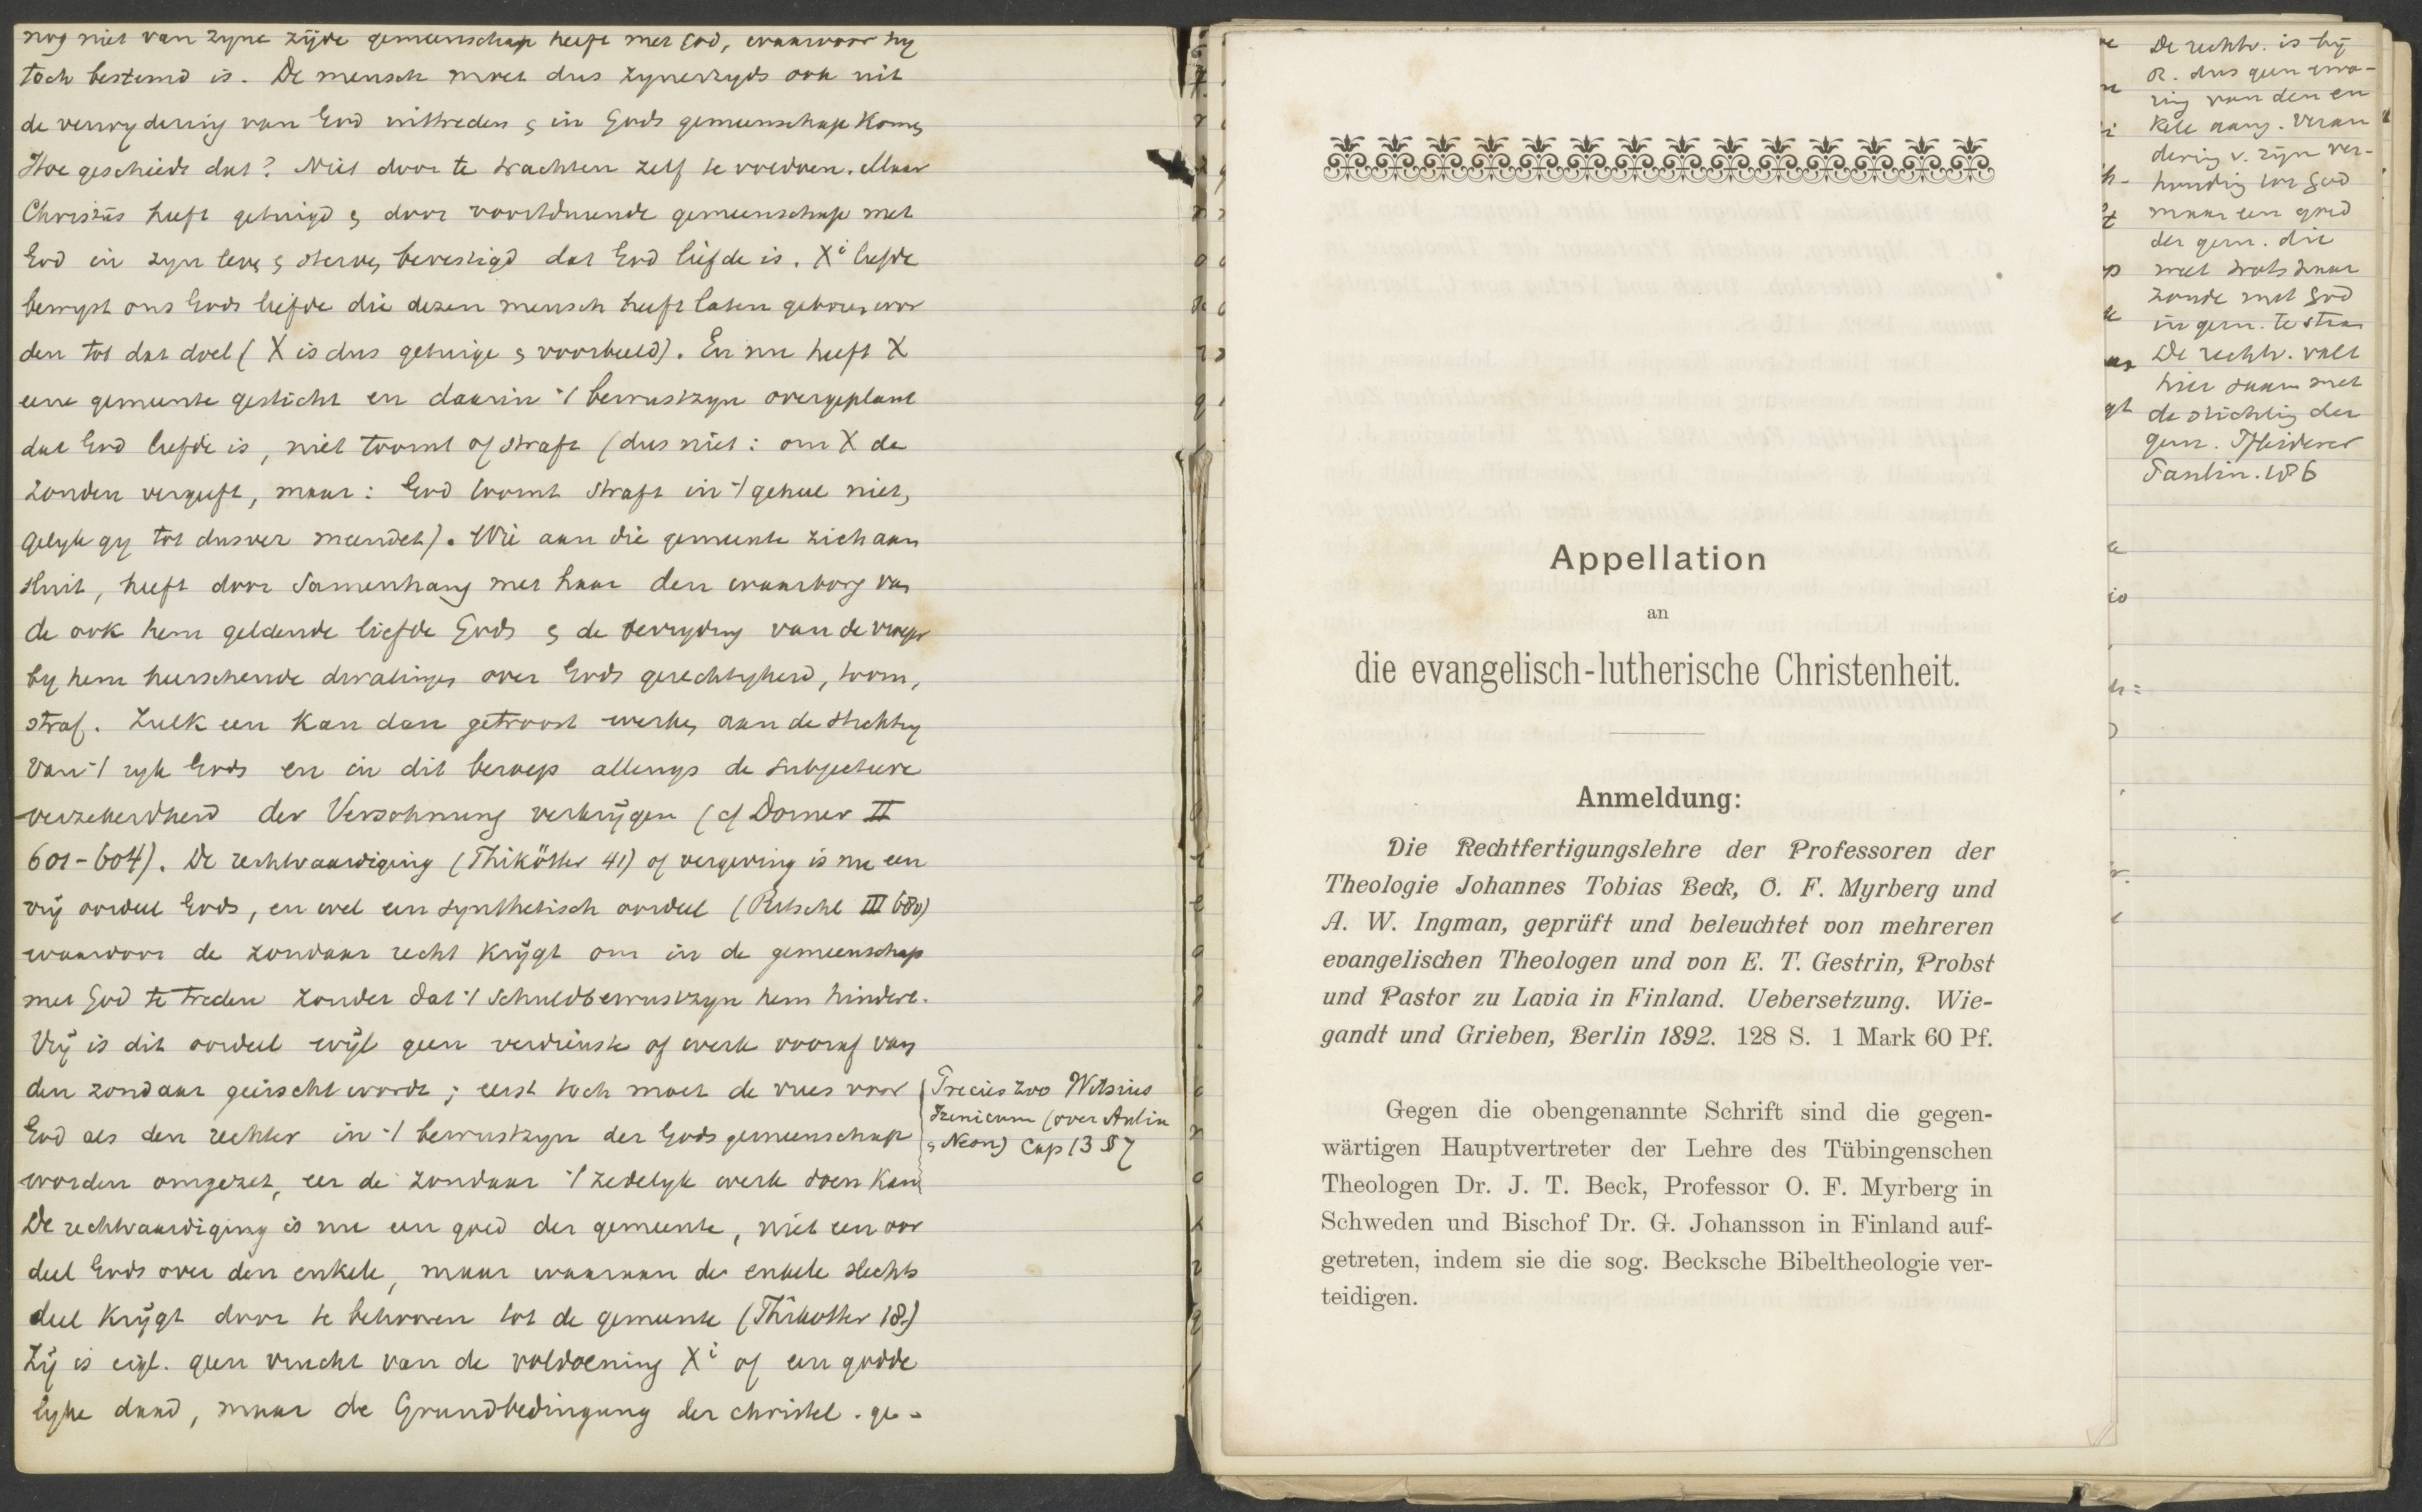 nog niet van zyne zijde gemeenschap heeft met God, waarvoor hy
toch bestemd is. De mensch moet dus zynerzyds ook uit
de verwydering van God uittreden & in Gods gemeenschap komen
Hoe geschiedt dat? Niet door te trachten zelf te voldoen. Maar
Christus heeft getuigd & door voortdurende gemeenschap met
God in zyn leven & sterven bevestigd dat God liefde is. Xi liefde
bewyst ons Gods liefde die dezen mensch heeft laten geboren wor
den tot dat doel (X is dus getuige & voorbeeld). En nu heeft X
eene gemeente gesticht en daarin 't bewustzyn overgeplant
dat God liefde is, niet toornt of straft (dus niet: om X de
zonden vergeeft, maar: God toornt straft in 't geheel niet,
gelyk gy tot dusver meendet). Wie aan die gemeente zich aan
sluit, heeft door samenhang met haar den waarborg van
de ook hem geldende liefde Gods & de bevryding van de vroeger
by hem heerschende dwalingen over Gods gerechtigheid, toorn,
straf. Zulk een kan dan getroost werken aan de stichting
van 't ryk Gods en in dit beroep allengs de subjectieve
verzekerdheid der Versöhnung verkrijgen (cf Dorner II
601-604). De rechtvaardiging (Thikötter 41) of vergeving is nu een
vrij oordeel Gods, en wel een synthetisch oordeel (Ritschl III 680)
waardoor de zondaar recht krijgt om in de gemeenschap
met God te treden zonder dat 't schuldbewustzyn hem hindert.
Vrij is dit oordeel wijl geen verdienste of werk vooraf van
den zondaar geëischt wordt; eerst toch moet de vrees voor
God als den rechter in 't bewustzyn der Gods gemeenschap
worden omgezet, eer de zondaar 't zedelyk werk doen kan
De rechtvaardiging is nu een goed der gemeente, niet een oor
deel Gods over den enkele, maar waaraan de enkele slechts
deel krijgt door te behooren tot de gemeente (Thikötter 18)
Zij is eigl. geen vrucht van de voldoening Xi of een godde
lyke daad, maar de Grundbedingung der christel. ge-
Precies zoo Witsius
Irenicum (over Antin
& Neon) Cap 13 § 7
Appellation
an
die evangelisch-lutherische Christenheit.
Anmeldung:
Die Rechtfertigungslehre der Professoren der
Theologie Johannes Tobias Beck, O. F. Myrberg und
A. W. Ingman, geprüft und beleuchtet von mehreren
evangelischen Theologen und von E. T. Gestrin, Probst
und Pastor zu Lavia in Finland. Uebersetzung. Wie-
gandt und Grieben, Berlin 1892. 128 S. 1 Mark 60 Pf.
Gegen die obengenannte Schrift sind die gegen-
wärtigen Hauptvertreter der Lehre des Tübingenschen
Theologen Dr. J. T. Beck, Professor O. F. Myrberg in
Schweden und Bischof Dr. G. Johansson in Finland auf-
getreten, indem sie die sog. Becksche Bibeltheologie ver-
teidigen.
De rechtv. is bij
R. dus geen erva-
ring van den en
kele aang. veran
dering v. zijn ver-
houding tot God
maar een goed
der gem. die
weet trots haar
zonde met God
in gem. te staan
De rechtv. valt
hier saam met
de stichting der
gem. Pfleiderer
Paulin. 186